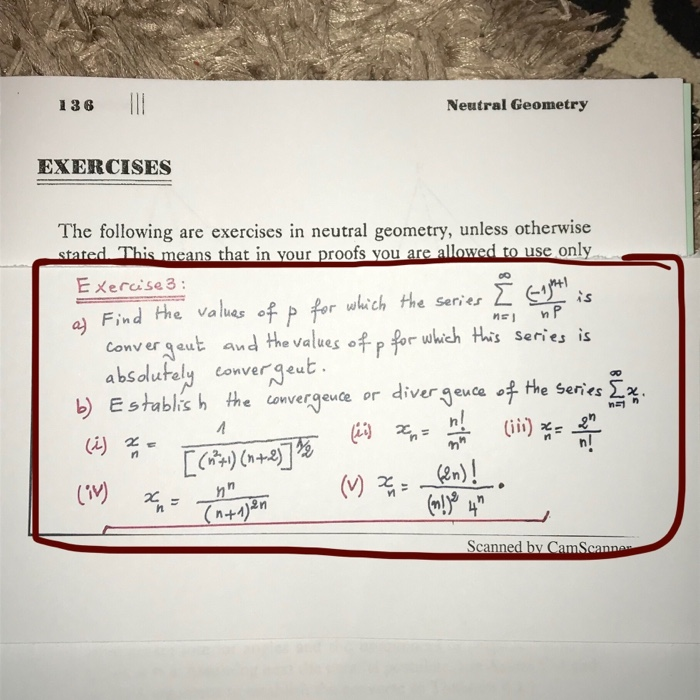 136 |||
Neutral Geometry
EXERCISES
The following are exercises in neutral geometry, unless otherwise
stated. This means that in your proofs you are allowed to use only
Exercise 3:
a) Find the values of p for which the series ∑_{n=1}^{∞} (-1)^{n+1}/n^p is
convergent and the values of p for which this series is
absolutely convergent.
b) Establish the convergence or divergence of the series ∑_{n=1}^{∞} x_n.
(i) x_n = 1/[(n²+1)(n+2)]^{1/2} (ii) x_n = n!/n^n (iii) x_n = 2^n/n!
(iv) x_n = n^n/(n+1)^{2n} (v) x_n = (2n)!/((n!)² 4^n).
Scanned by CamScanner